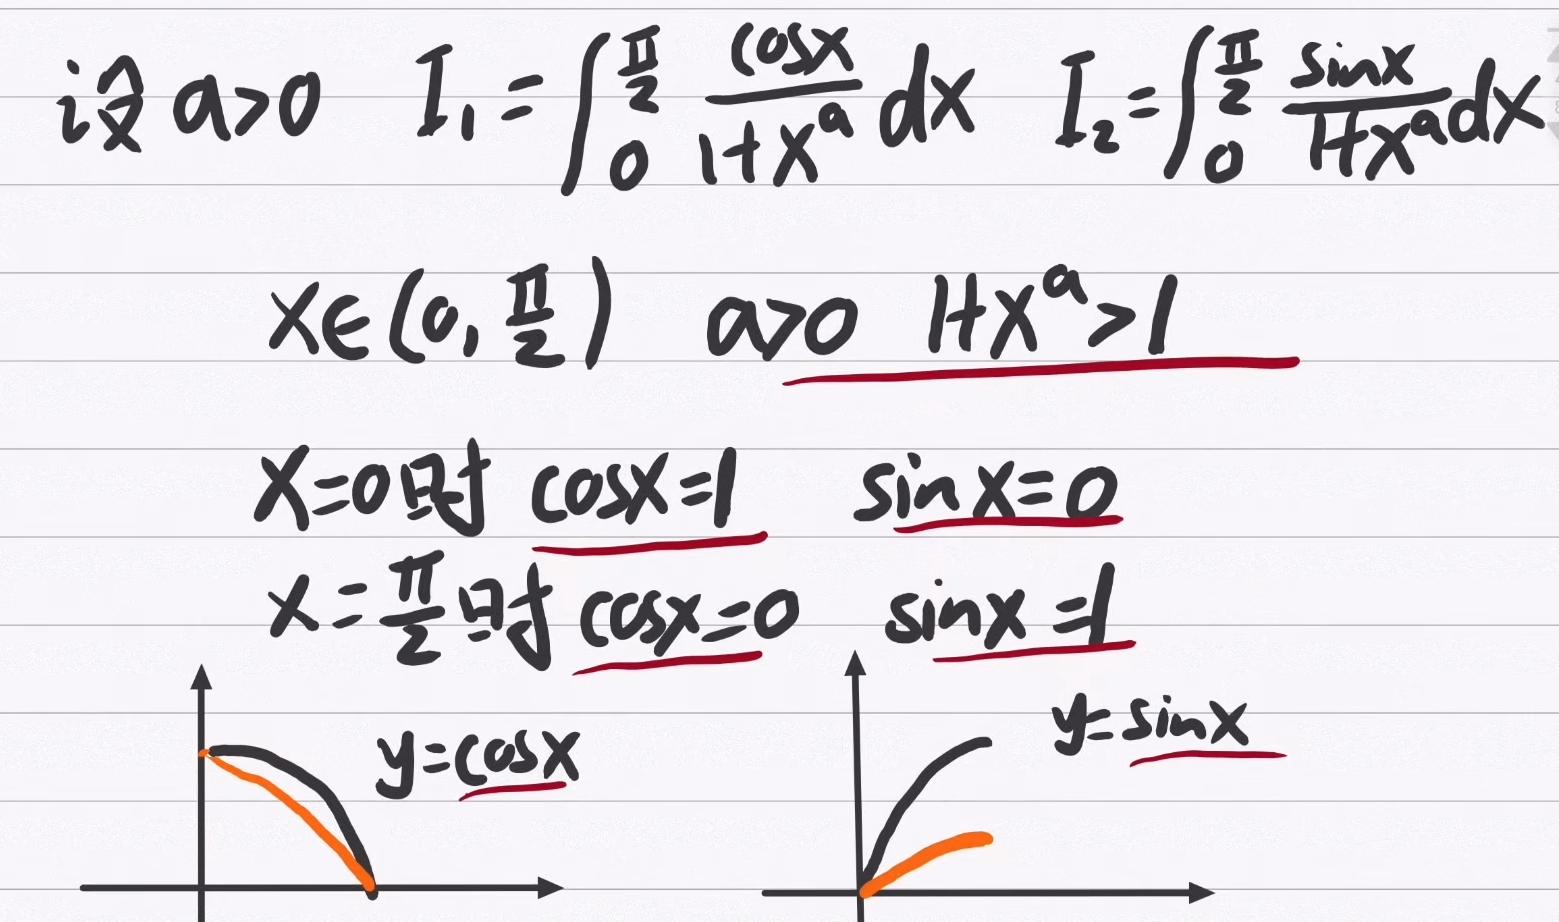 设 a>0 I₁=∫₀^(π/2) cosx/(1+x^a) dx I₂=∫₀^(π/2) sinx/(1+x^a) dx
x∈(0, π/2) a>0 1+x^a>1
x=0时 cosx=1 sinx=0
x=π/2时 cosx=0 sinx=1
y=cosx y=sinx